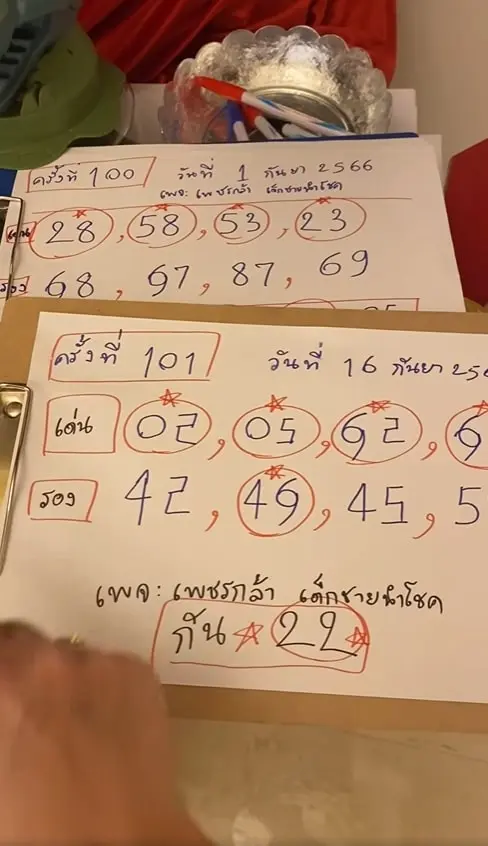 ครั้งที่ 100 วันที่ 1 กันยา 2566
เพจ: เพชรกล้า เด็กชายนำโชค
28, 58, 53, 23
รอง 68, 67, 87, 69
ครั้งที่ 101 วันที่ 16 กันยา 256
เด่น 02, 05, 62, 6
รอง 42, 49, 45, 5
เพจ: เพชรกล้า เด็กชายนำโชค
กัน 22